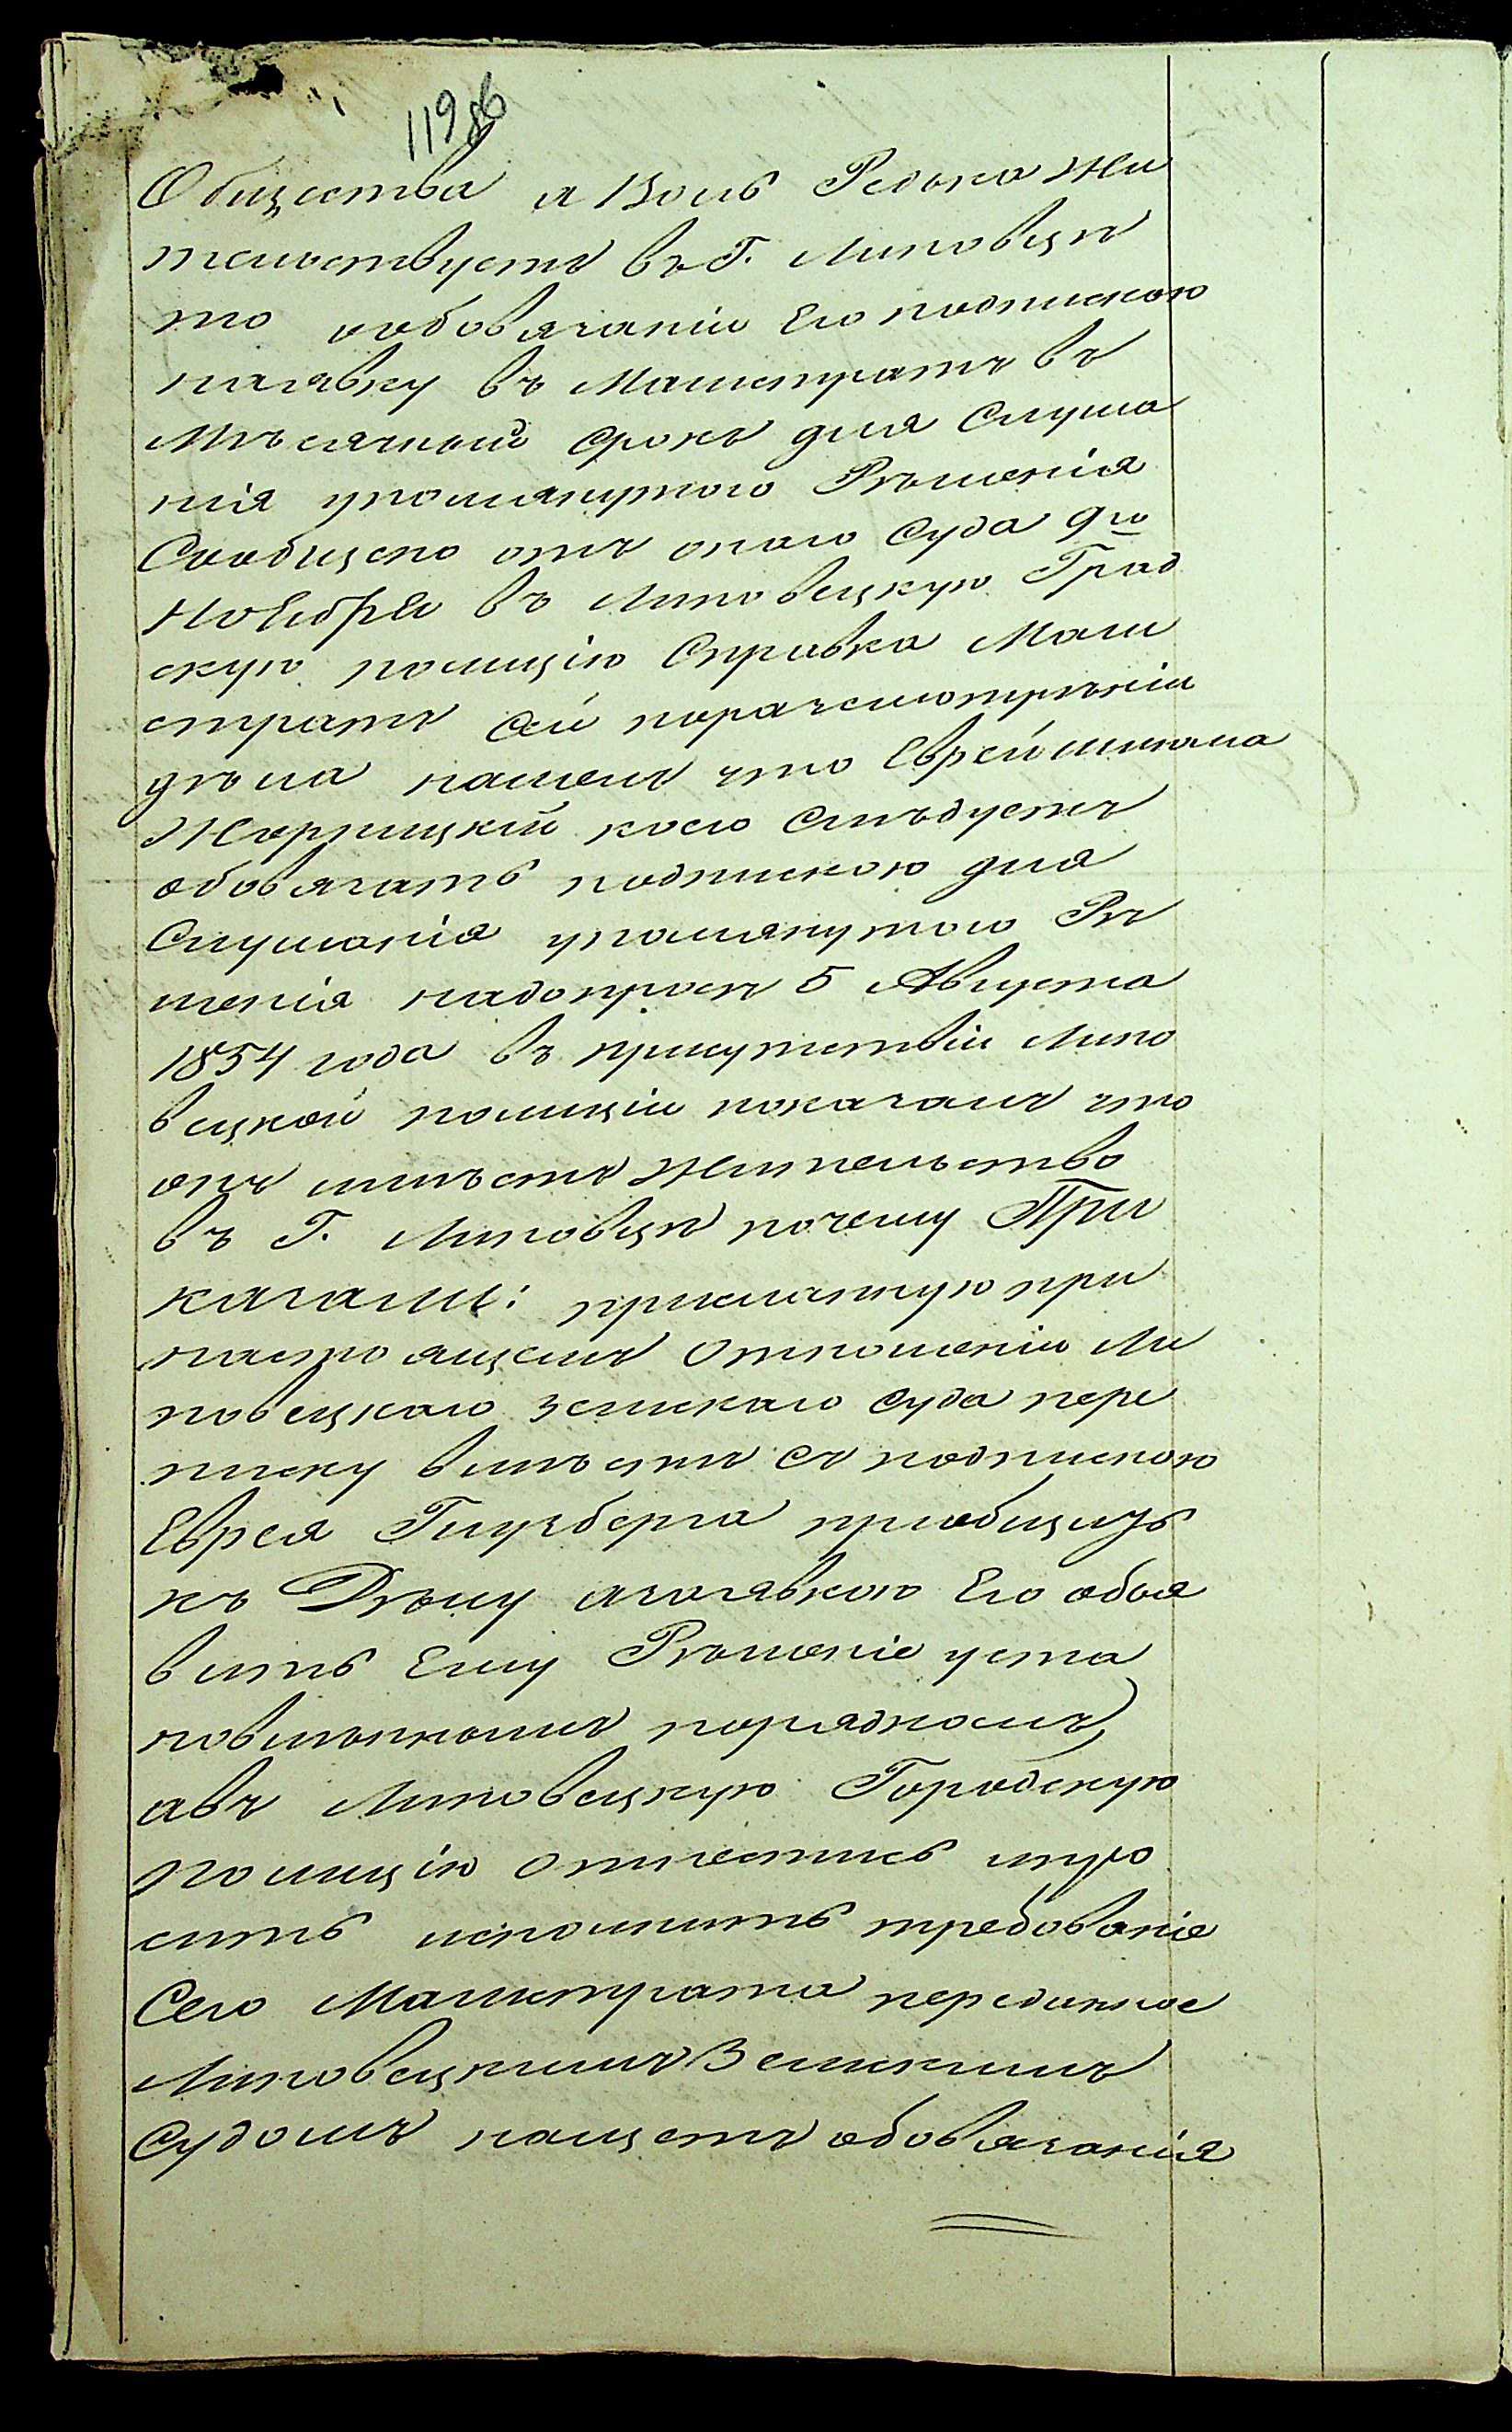 119об
Общества а Волъ Редька жи
тельствуетъ въ Г. Липовцѣ
то ообовязаніи Его подпискою
наявку въ Магистратъ въ
Мѣсячный срокъ для Слуша
нія упомянутого Рѣшенія
Сообщено отъ оного Суда 9го
Ноября въ Липовецкую Град
скую полицію Справка Маги
стратъ Сей поразсмотрѣніи
дѣла нашелъ что Еврей
коего Слѣдуетъ
обовязать подпискою для
Слушанія упомянутого Рѣ
шенія надопросѣ 5 Августа
1854 года въ присутствіи Липо
вецкой полиціи показалъ что
онъ имѣетъ жительство
въ Г. Липовцѣ почему При
казали: присланную при
настоящемъ Отношеніи Ли
повецкаго Земскаго Суда пере
писку вмѣстѣ съ подпискою
Еврея Гинзберга приобщить
къ Дѣлу азаявкою Его объя
вить Ему Рѣшеніе уста
новленнымъ порядкомъ,
авъ Липовецкую Городскую
полицію отнестись ипро
сить исполнить требованіе
Сего Магистрата переданное
Липовецкимъ Земскимъ
Судомъ нащетъ обовязанія